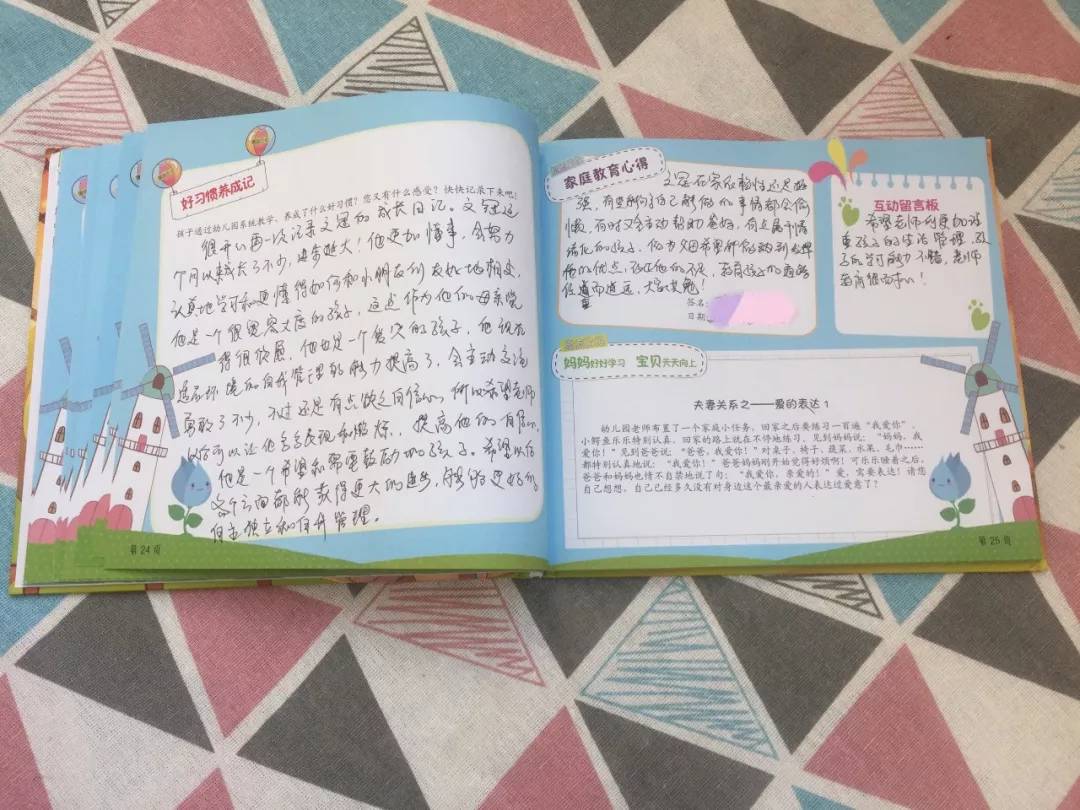 好习惯养成记
孩子通过幼儿园系统教学，养成了什么好习惯？您又有什么感受？快快记录下来吧！
很开心再一次记录文冠的成长日记。文冠这
个月以来成长了不少，进步挺大！他更加懂事，会努力
认真地学习和更懂得如何和小朋友们友好地相处，
他是一个很宽容大度的孩子，这这作为他的母亲觉
得很欣慰，他也是一个的孩子，他现在
适应环境和自我管理的能力提高了，会主动交流
勇敢了不少，不过还是有点缺乏自信心，所以希望老师
以后可以让他多多表现和锻炼，提高他的自信心，
他是一个希望和需要鼓励的孩子。希望以后
各个方面都能获得更大的进步，能够更好的
自主独立和自我管理。
第 24 页
家庭教育心得
文冠在家的还是
强，有些能自己做的事情都会偷
懒，有时又会主动帮助爸妈，有点
绪化的孩子，作为父母希望能做到
他的优点，他的不足，孩子的
任重而道远，大家共勉！
签名：
日期：
互动留言板
希望老师们更加注
重孩子的生活管理，孩
子的学习能力不错，老师
教育很用心！
妈妈好好学习 宝贝天天向上
夫妻关系之——爱的表达 1
幼儿园老师布置了一个家庭小任务，回家之后要练习一百遍“我爱你”，
小鳄鱼乐乐特别认真，回家的路上就在不停地练习，见到妈妈说：“妈妈，我
爱你！”见到爸爸说：“爸爸，我爱你！”对桌子、椅子、蔬菜、水果、毛巾……
都特别认真地说：“我爱你！”爸爸妈妈刚开始觉得好烦啊！可乐乐睡着之后，
爸爸和妈妈也情不自禁地说了句：“我爱你，亲爱的！”爱，需要表达！请您
自己想想，自己已经多久没有对身边这个最亲爱的人表达过爱意了？
第 25 页